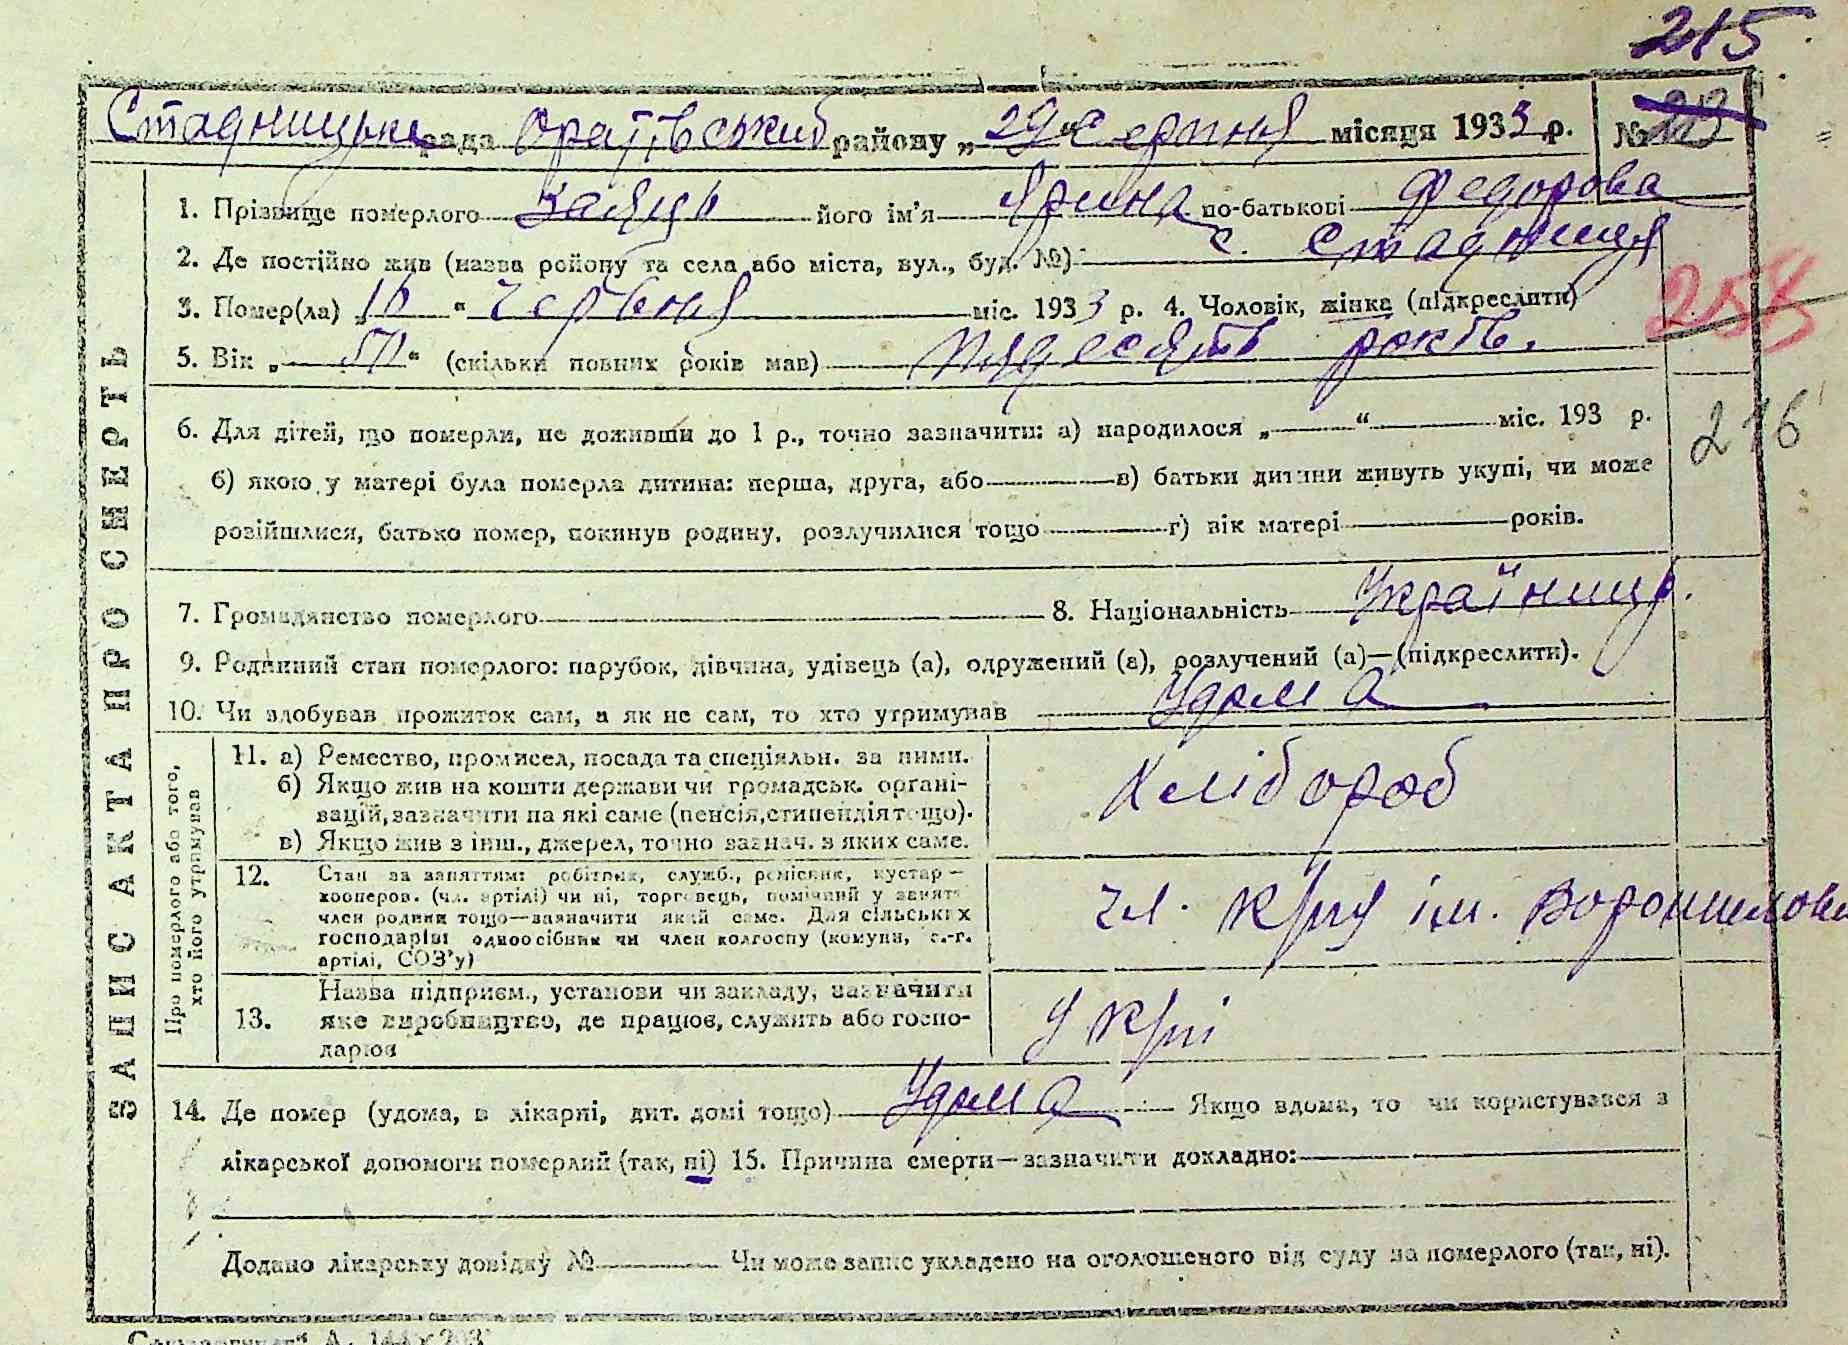 215
Стадницька рада Оратівський району „29“ Серпня місяця 1933 р. № 213
1. Прізвище померлого Заяць його ім'я Ярина по-батькові Федорова
2. Де постійно жив (назва району та села або міста, вул., буд. №) с. Стадниця
3. Помер(ла) „16“ червня міс. 1933 р. 4. Чоловік, жінка (підкреслити)
254
5. Вік „50“ (скільки повних років мав) пядесять років.
6. Для дітей, що померли, не доживши до 1 р., точно зазначити: а) народилося „ “ міс. 193 р.
216
б) якою у матері була померла дитина: перша, друга, або в) батьки дитини живуть укупі, чи може
розійшлися, батько помер, покинув родину, розлучилися тощо г) вік матері років.
7. Громадянство померлого 8. Національність Україниця.
9. Родинний стан померлого: парубок, дівчина, удівець (а), одружений (а), розлучений (а)—(підкреслити).
10. Чи здобував прожиток сам, а як не сам, то хто утримував Удома
ЗАПИС АКТА ПРО СМЕРТЬ
Про померлого або того,
хто його утримував
11. а) Ремество, промисел, посада та спеціяльн. за ними.
б) Якщо жив на кошти держави чи громадськ. органі-
зацій, зазначити на які саме (пенсія, стипендія тощо).
в) Якщо жив з інш., джерел, точно зазнач. з яких саме.
Хлібороб
12. Стан за заняттям: робітник, служб., ремісник, кустар—
кооперов. (чл. артілі) чи ні, торговець, помічний у занятт.
член родини тощо—зазначити який саме. Для сільських
господарів: одноосібник чи член колгоспу (комуни, с.-г.
артілі, СОЗ'у)
чл. к/гпу ім. Ворошилова
13. Назва підприєм., установи чи закладу, зазначити
яке виробництво, де працює, служить або госпо-
дарює
У к/гпі
14. Де помер (удома, в лікарні, дит. домі тощо) Удома Якщо вдома, то чи користувався з
лікарської допомоги померлий (так, ні) 15. Причина смерти—зазначити докладно:
Додано лікарську довідку № Чи може запис укладено на оголошеного від суду за померлого (так, ні).